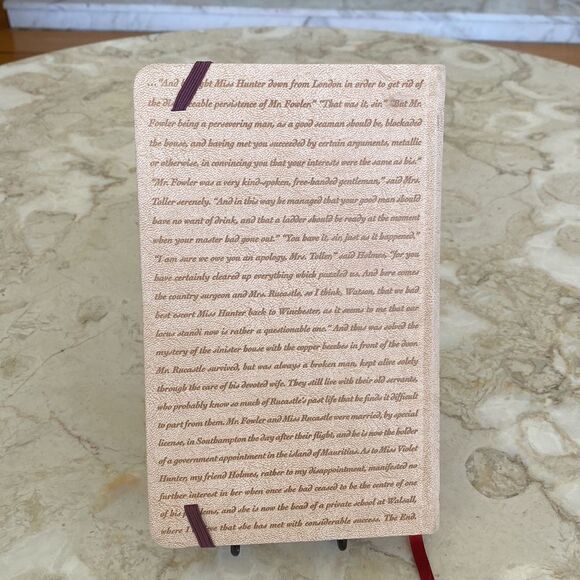 ... "And ght Miss Hunter down from London in order to get rid of
the d eeable persistence of Mr. Fowler." "That was it, sir." "But Mr.
Fowler being a persevering man, as a good seaman should be, blockaded
the house, and having met you succeeded by certain arguments, metallic
or otherwise, in convincing you that your interests were the same as his."
"Mr. Fowler was a very kind-spoken, free-handed gentleman," said Mrs.
Toller serenely. "And in this way he managed that your good man should
have no want of drink, and that a ladder should be ready at the moment
when your master had gone out." "You have it, sir, just as it happened."
"I am sure we owe you an apology, Mrs. Toller," said Holmes, "for you
have certainly cleared up everything which puzzled us. And here comes
the country surgeon and Mrs. Rucastle, so I think, Watson, that we had
best escort Miss Hunter back to Winchester, as it seems to me that our
locus standi now is rather a questionable one." And thus was solved the
mystery of the sinister house with the copper beeches in front of the door.
Mr. Rucastle survived, but was always a broken man, kept alive solely
through the care of his devoted wife. They still live with their old servants,
who probably know so much of Rucastle's past life that he finds it difficult
to part from them. Mr. Fowler and Miss Rucastle were married, by special
license, in Southampton the day after their flight, and he is now the holder
of a government appointment in the island of Mauritius. As to Miss Violet
Hunter, my friend Holmes, rather to my disappointment, manifested no
further interest in her when once she had ceased to be the centre of one
of his p ems, and she is now the head of a private school at Walsall,
where I ve that she has met with considerable success. The End.